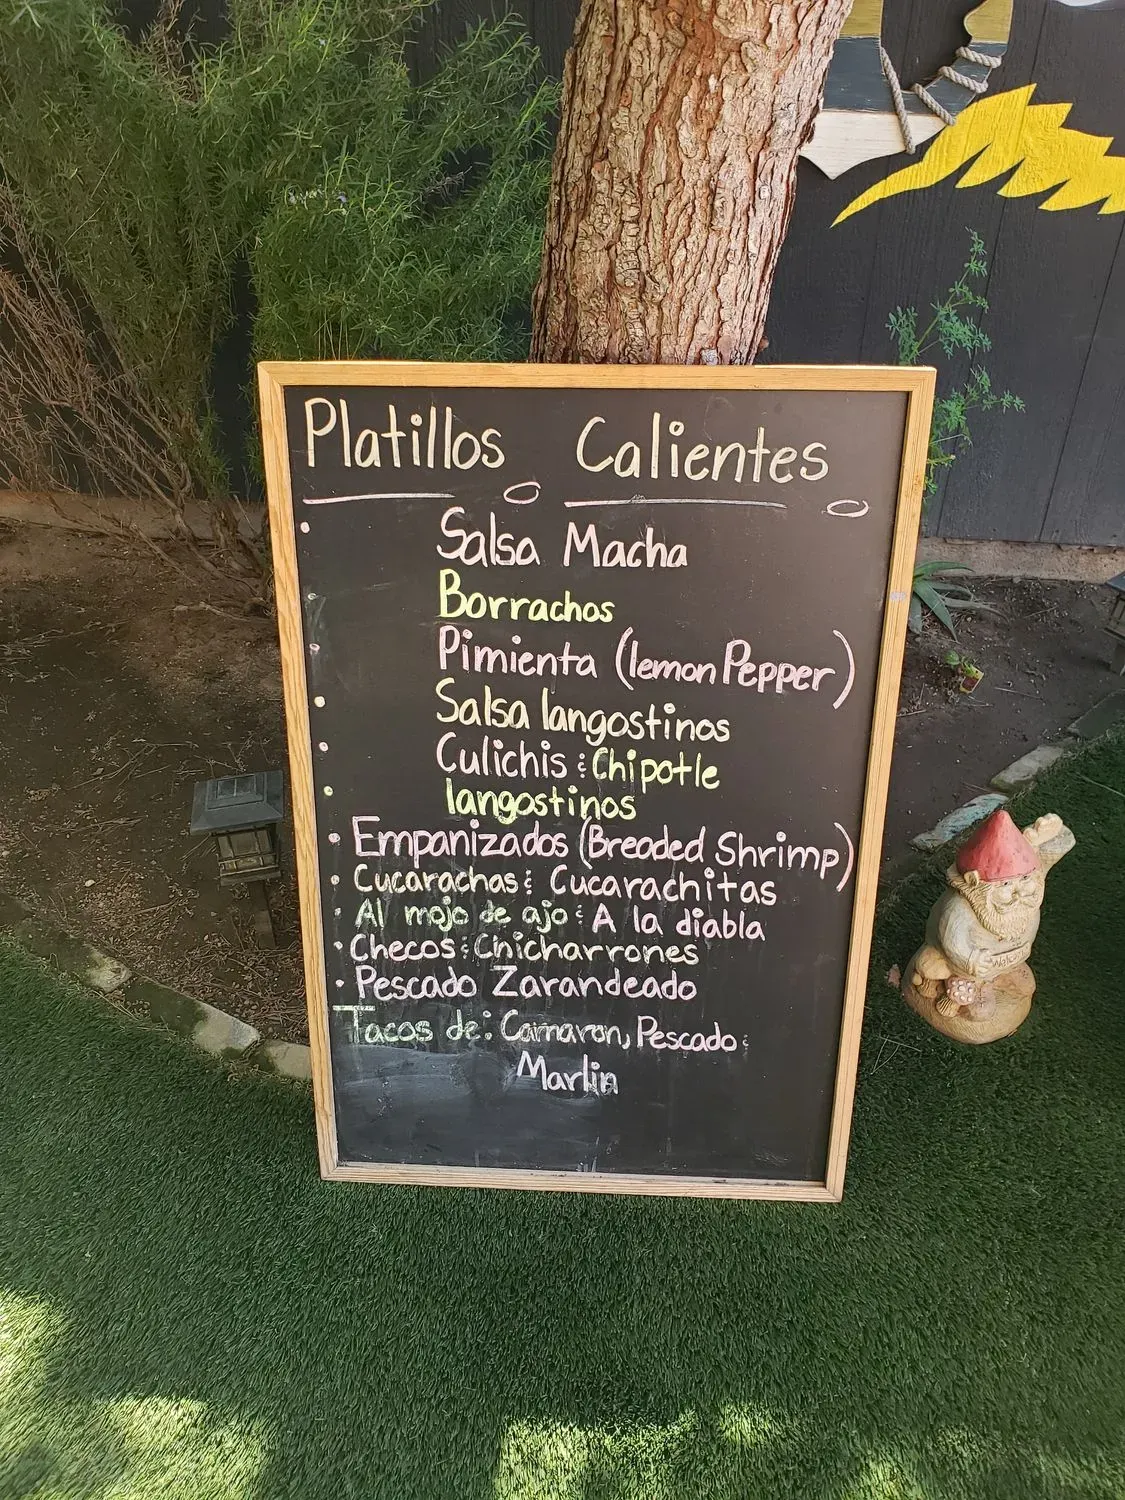 Platillos Calientes
• Salsa Macha
• Borrachos
• Pimienta (lemon Pepper)
• Salsa langostinos
• Culichis & Chipotle
• langostinos
• Empanizados (Breaded Shrimp)
• Cucarachas & Cucarachitas
• Al mojo de ajo & A la diabla
• Checos & Chicharrones
• Pescado Zarandeado
Tacos de: Camaron, Pescado &
Marlin